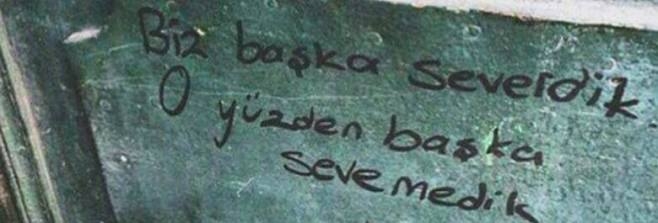 Biz başka severdik
O yüzden başka
sevemedik